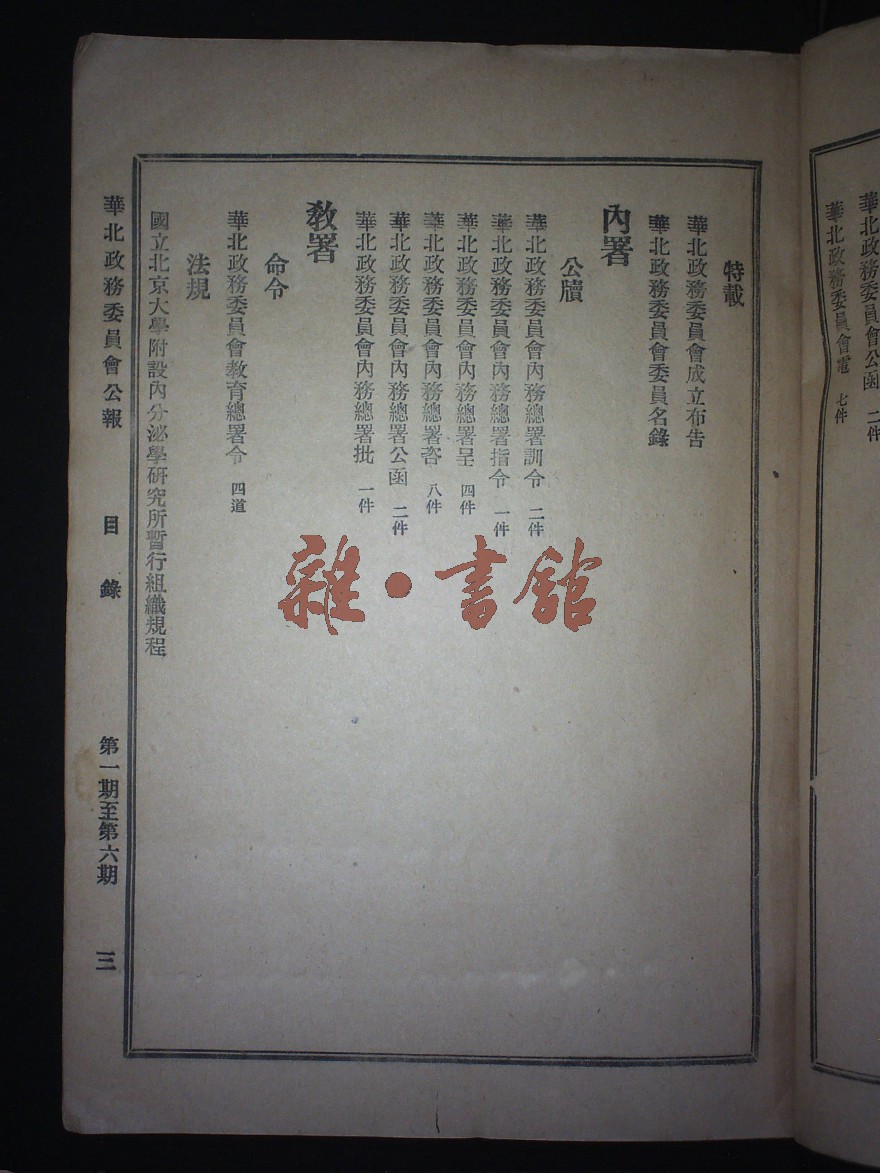 華北政務委員會公函 二件
華北政務委員會電 七件
特載
華北政務委員會成立布告
華北政務委員會委員名錄
內署
公牘
華北政務委員會內務總署訓令 二件
華北政務委員會內務總署指令 一件
華北政務委員會內務總署呈 四件
華北政務委員會內務總署咨 八件
華北政務委員會內務總署公函 二件
華北政務委員會內務總署批 一件
教署
命令
華北政務委員會教育總署令 四道
法規
國立北京大學附設內分泌學研究所暫行組織規程
華北政務委員會公報 目錄 第一期至第六期 三
雜·書館